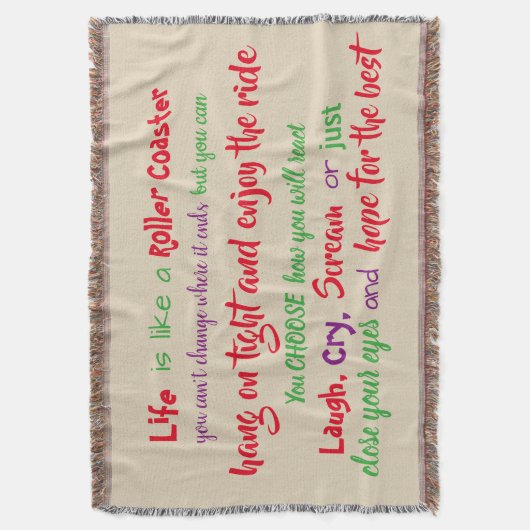 Life is like a Roller Coaster
you can't change where it ends but you can
hang on tight and enjoy the ride
You CHOOSE how you will react
Laugh, Cry, Scream or just
close your eyes and hope for the best